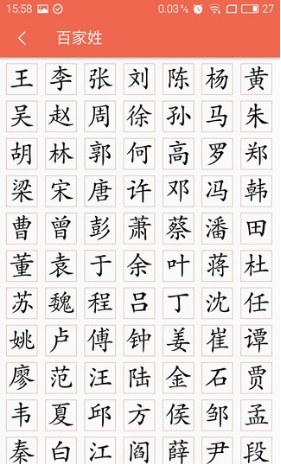 15:58 0.03 27
百家姓
王 李 张 刘 陈 杨 黄
吴 赵 周 徐 孙 马 朱
胡 林 郭 何 高 罗 郑
梁 宋 唐 许 邓 冯 韩
曹 曾 彭 萧 蔡 潘 田
董 袁 于 余 叶 蒋 杜
苏 魏 程 吕 丁 沈 任
姚 卢 傅 钟 姜 崔 谭
廖 范 汪 陆 金 石 贾
韦 夏 邱 方 侯 邹 孟
秦 白 江 阎 薛 尹 段